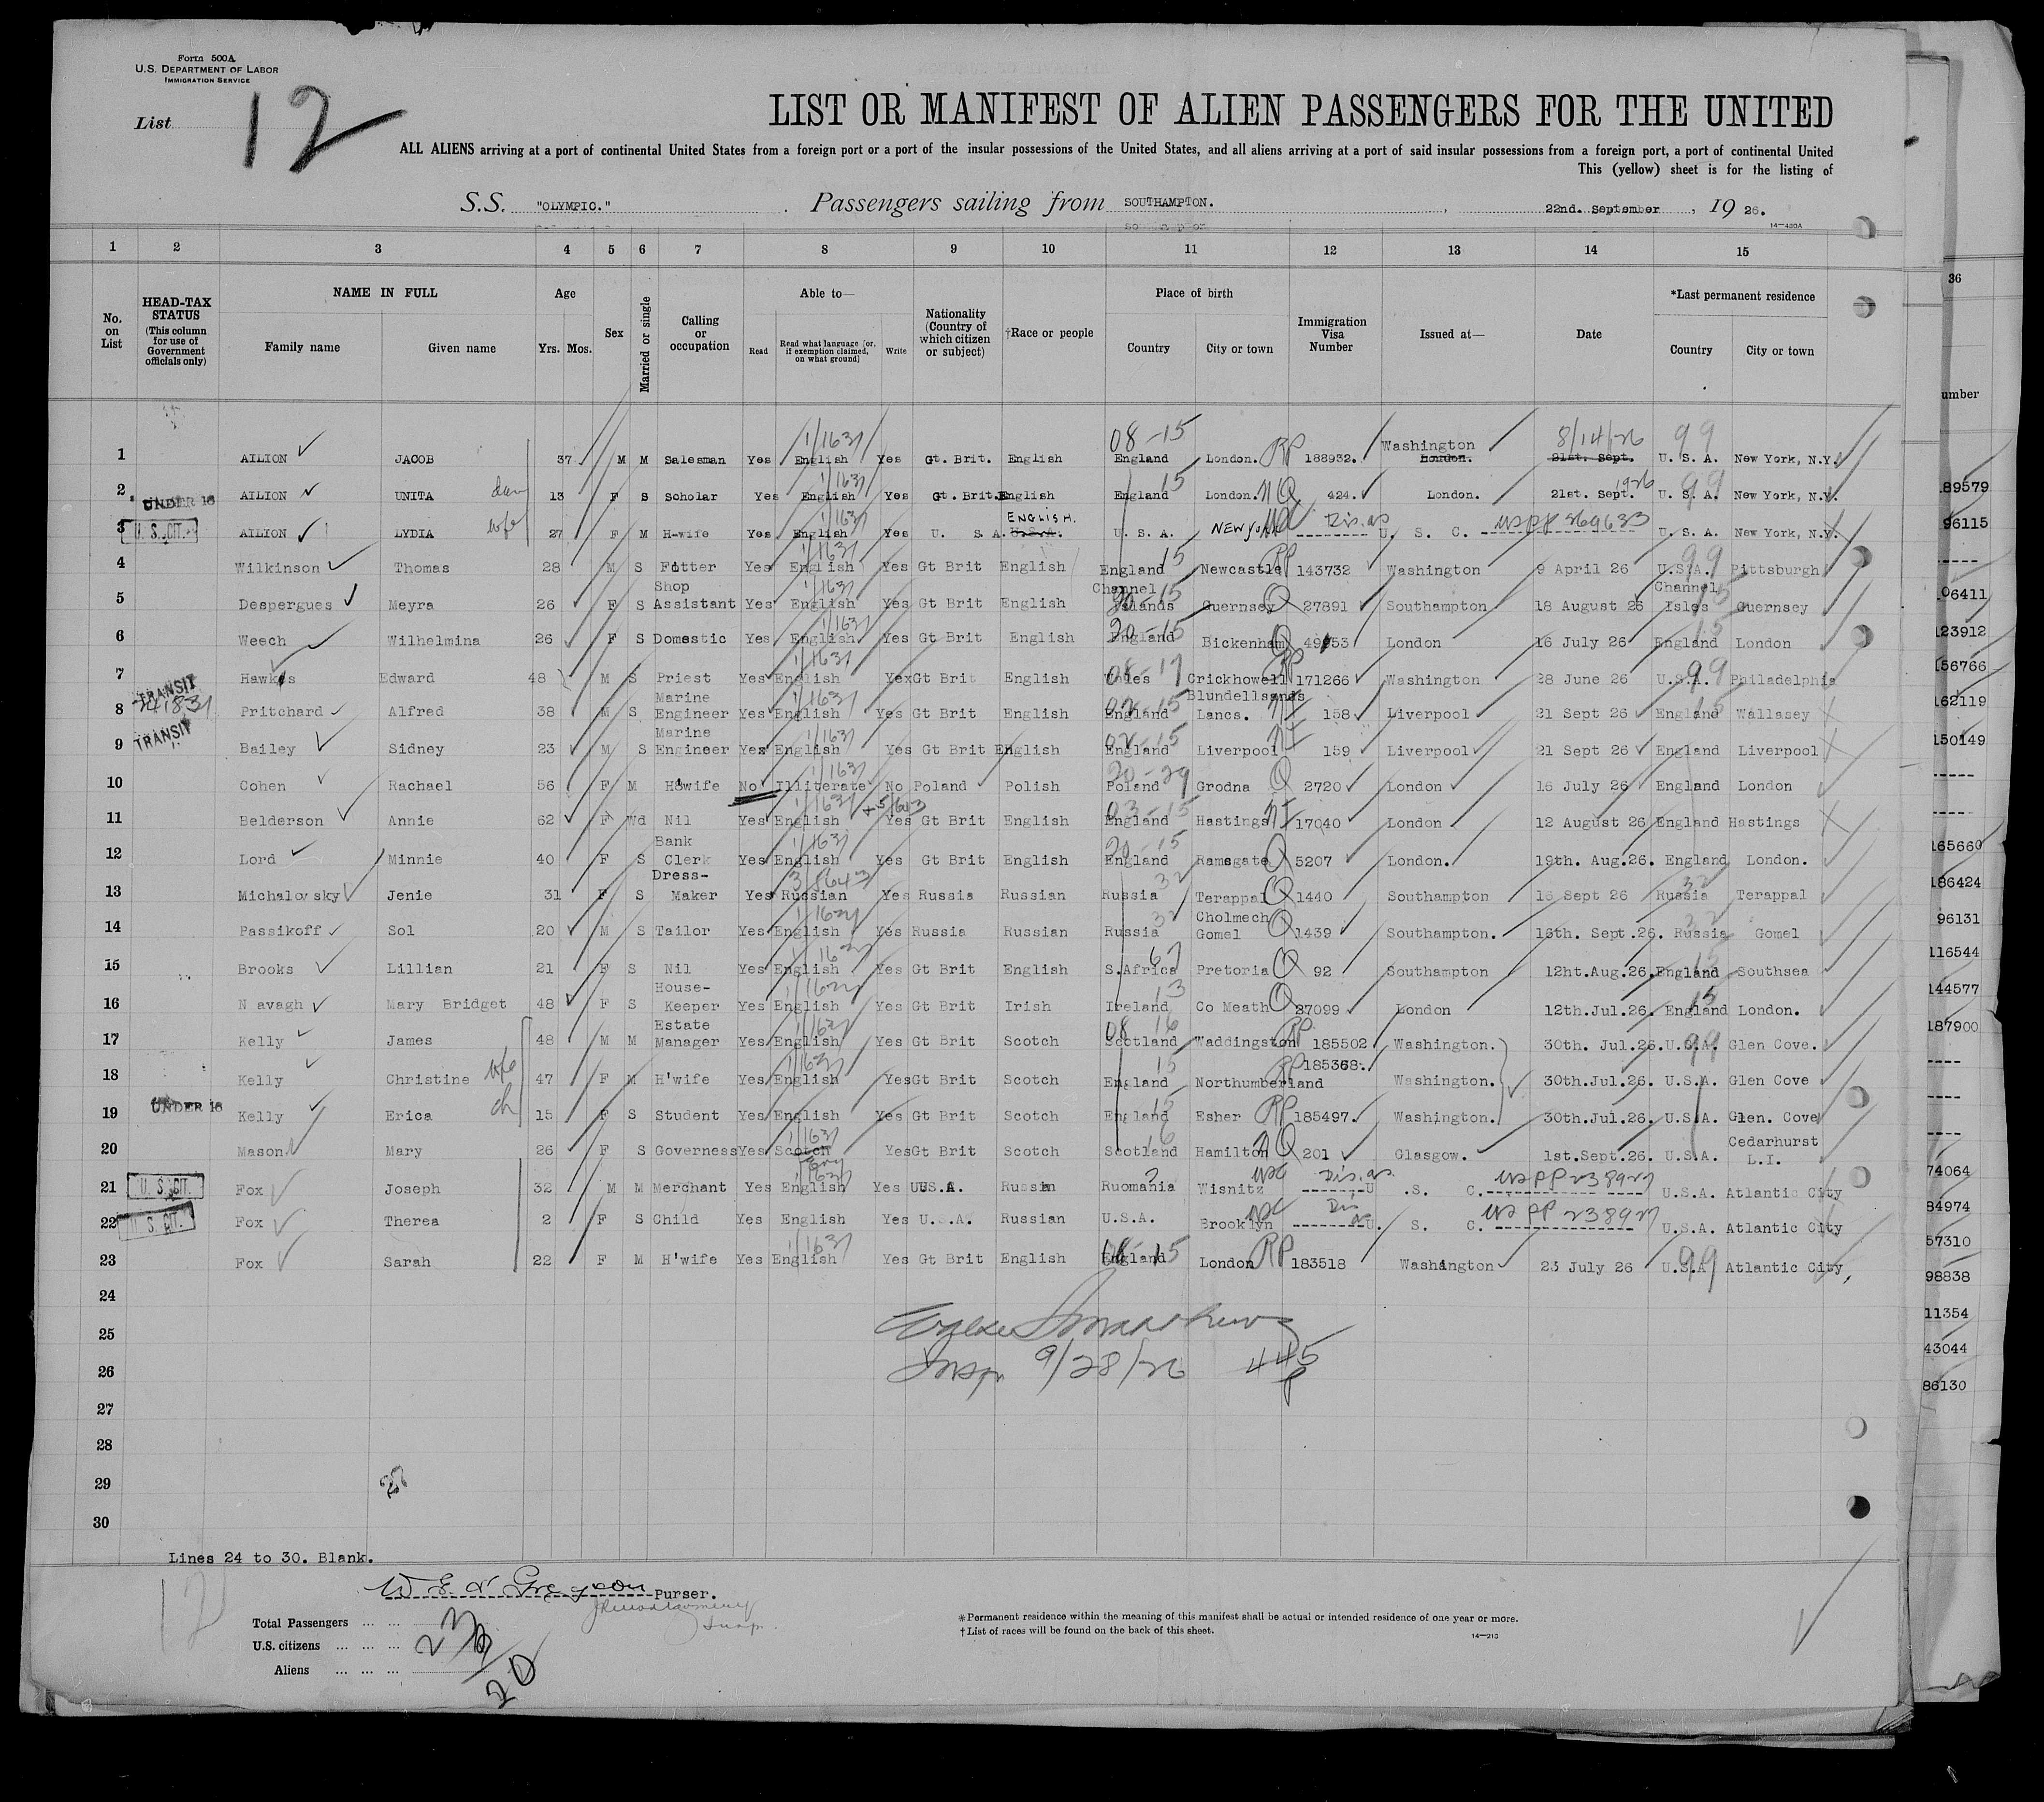 Form 500A
U.S. DEPARTMENT OF LABOR
IMMIGRATION SERVICE
List 12
LIST OR MANIFEST OF ALIEN PASSENGERS FOR THE UNITED
ALL ALIENS arriving at a port of continental United States from a foreign port or a port of the insular possessions of the United States, and all aliens arriving at a port of said insular possessions from a foreign port, a port of continental United
This (yellow) sheet is for the listing of
S.S. "OLYMPIC." Passengers sailing from SOUTHAMPTON. , 22nd. September , 19 26.
14—430A
1 2 3 4 5 6 7 8 9 10 11 12 13 14 15
36
No. on List
HEAD-TAX STATUS (This column for use of Government officials only)
NAME IN FULL
Family name Given name
Age
Yrs. Mos.
Sex
Married or single
Calling or occupation
Able to—
Read Read what language [or, if exemption claimed, on what ground] Write
Nationality (Country of which citizen or subject)
†Race or people
Place of birth
Country City or town
Immigration Visa Number
Issued at—
Date
*Last permanent residence
Country City or town
umber
1 AILION JACOB 37 M M Salesman Yes English Yes Gt. Brit. English England London. RP 188932. Washington London. 8/14/26 21st. Sept. U. S. A. New York, N.Y. 99 08-15 1/1637
2 UNDER 16 AILION UNITA 13 F S Scholar Yes English Yes Gt. Brit. English England London. NQ 424. London. 21st. Sept. 1926 U. S. A. New York, N.Y. 99 15 1/1637
3 U. S. CIT. AILION LYDIA wfe 27 F M H-wife Yes English Yes U. S A. ENGLISH. U.S.A. U. S. A. NEW YORK U. S. C. USPP 369633 U. S. A. New York, N.Y. 1/1637
4 Wilkinson Thomas 28 M S Fitter Yes English Yes Gt Brit English England Newcastle RP 143732 Washington 9 April 26 U.S.A. Pittsburgh 99 15 1/1637
5 Despergues Meyra 26 F S Shop Assistant Yes English Yes Gt Brit English Channel Islands Guernsey Q 27891 Southampton 18 August 26 Channel Isles Guernsey 20-15 15 1/1637
6 Weech Wilhelmina 26 F S Domestic Yes English Yes Gt Brit English England Bickenham Q 49953 London 16 July 26 England London 20-15 15 1/1637
7 Hawkes Edward 48 M S Priest Yes English Yes Gt Brit English Wales Crickhowell RP 171266 Washington 28 June 26 U.S.A. Philadelphia 08-17 99 1/1637
8 TRANSIT Pritchard Alfred 38 M S Marine Engineer Yes English Yes Gt Brit English England Blundellsands Lancs. 158 Liverpool 21 Sept 26 England Wallasey 02-15 15 1/1637
9 TRANSIT Bailey Sidney 23 M S Marine Engineer Yes English Yes Gt Brit English England Liverpool 159 Liverpool 21 Sept 26 England Liverpool 02-15 1/1637
10 Cohen Rachael 56 F M H'wife No Illiterate No Poland Polish Poland Grodna Q 2720 London 16 July 26 England London 20-29 1/1637
11 Belderson Annie 62 F Wd Nil Yes English Yes Gt Brit English England Hastings 17040 London 12 August 26 England Hastings 03-15 1/1637
12 Lord Minnie 40 F S Bank Clerk Yes English Yes Gt Brit English England Ramsgate Q 5207 London. 19th. Aug.26. England London. 20-15 1/1637
13 Michalovsky Jenie 31 F S Dress-Maker Yes Russian Yes Russia Russian Russia Terappal Q 1440 Southampton 16 Sept 26 Russia Terappal 32 32
14 Passikoff Sol 20 M S Tailor Yes English Yes Russia Russian Russia Cholmech Gomel Q 1439 Southampton. 16th. Sept.26. Russia Gomel 32 32
15 Brooks Lillian 21 F S Nil Yes English Yes Gt Brit English S.Africa Pretoria Q 92 Southampton 12ht.Aug.26. England Southsea 67 15
16 N avagh Mary Bridget 48 F S House-Keeper Yes English Yes Gt Brit Irish Ireland Co Meath Q 27099 London 12th.Jul.26. England London. 13 15
17 Kelly James 48 M M Estate Manager Yes English Yes Gt Brit Scotch Scotland Waddingston RP 185502 Washington. 30th. Jul.26. U.S.A. Glen Cove. 08 16 99
18 Kelly Christine wfe 47 F M H'wife Yes English Yes Gt Brit Scotch England Northumberland RP 185368. Washington. 30th.Jul.26. U.S.A. Glen Cove 15 1/1637
19 UNDER 16 Kelly Erica ch 15 F S Student Yes English Yes Gt Brit Scotch England Esher RP 185497. Washington. 30th.Jul.26. U.S.A. Glen. Cove 15
20 Mason Mary 26 F S Governess Yes Scotch Eng Yes Gt Brit Scotch Scotland Hamilton NQ 201 Glasgow. 1st.Sept.26. U.S.A. Cedarhurst L.I. 16 1/1637
21 U. S. CIT. Fox Joseph 32 M M Merchant Yes English Yes U.S.A. Russian Ruomania Wisnitz USC U .S. C. USPP 238927 U.S.A. Atlantic City
22 U. S. CIT. Fox Therea 2 F S Child Yes English Yes U.S.A. Russian U.S.A. Brooklyn USC U. S. C. US PP 238927 U.S.A. Atlantic City
23 Fox Sarah 22 F M H'wife Yes English Yes Gt Brit English England London RP 183518 Washington 23 July 26 U.S.A Atlantic City 08-15 99 1/1637
24
25
26 Insp. 9/28/26 445
27
28
29
30
89579
96115
-----
06411
123912
156766
162119
150149
-----
-----
165660
186424
96131
116544
144577
187900
----
----
----
74064
84974
57310
98838
11354
43044
86130
Lines 24 to 30. Blank.
12
Purser.
Total Passengers 23
U.S. citizens 3
Aliens 20
*Permanent residence within the meaning of this manifest shall be actual or intended residence of one year or more.
†List of races will be found on the back of this sheet.
14—213